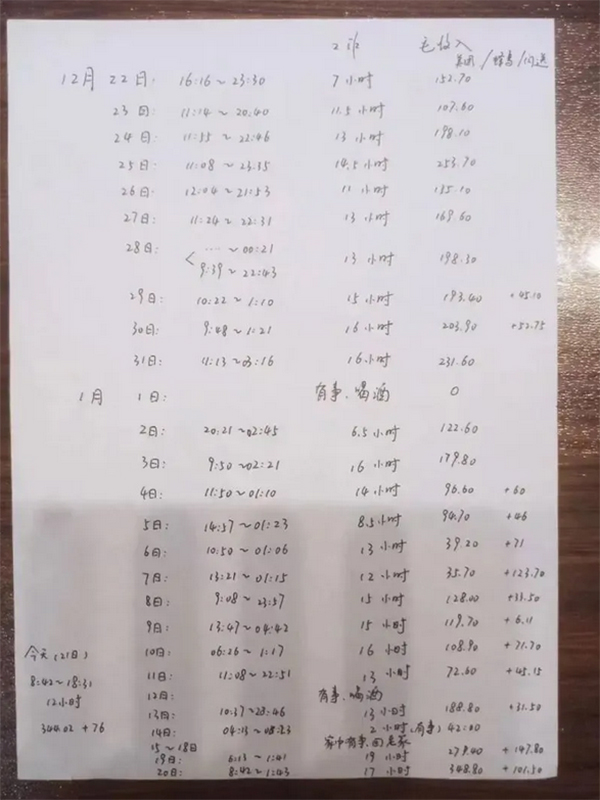 工作 毛收入
美团/蜂鸟/闪送
12月 22日: 16:16~23:30 7小时 152.70
23日: 11:14~20:40 11.5小时 107.60
24日: 11:55~22:46 13小时 198.10
25日: 11:08~23:35 14.5小时 253.70
26日: 12:04~21:53 11小时 135.10
27日: 11:24~22:31 13小时 169.60
28日: < ....~00:21
9:39~22:43 13小时 198.30
29日: 10:22~1:10 15小时 193.40 +45.10
30日: 9:48~1:21 16小时 203.90 +52.75
31日: 11:13~03:16 16小时 231.60
1月 1日: 有事、喝酒 0
2日: 20:21~02:45 6.5小时 122.60
3日: 9:50~02:21 16小时 179.80
4日: 11:50~01:10 14小时 96.60 +60
5日: 14:57~01:23 8.5小时 94.70 +46
6日: 10:50~01:06 13小时 39.20 +71
7日: 13:21~01:15 12小时 35.70 +123.70
8日: 9:08~23:57 15小时 128.00 +31.50
9日: 13:47~04:42 15小时 119.70 +6.11
10日: 06:26~1:17 16小时 108.90 +71.70
11日: 11:08~22:51 13小时 72.60 +45.15
12日: 有事、喝酒
13日: 10:37~23:46 13小时 188.80 +31.50
14日: 04:15~08:23 2小时(有事) 42.00
15~18日 家中有事、回老家
19日: 6:13~1:41 19小时 279.40 +147.80
20日: 8:42~1:43 17小时 348.80 +101.50
今天(21日)
8:42~18:31
12小时
344.02+76